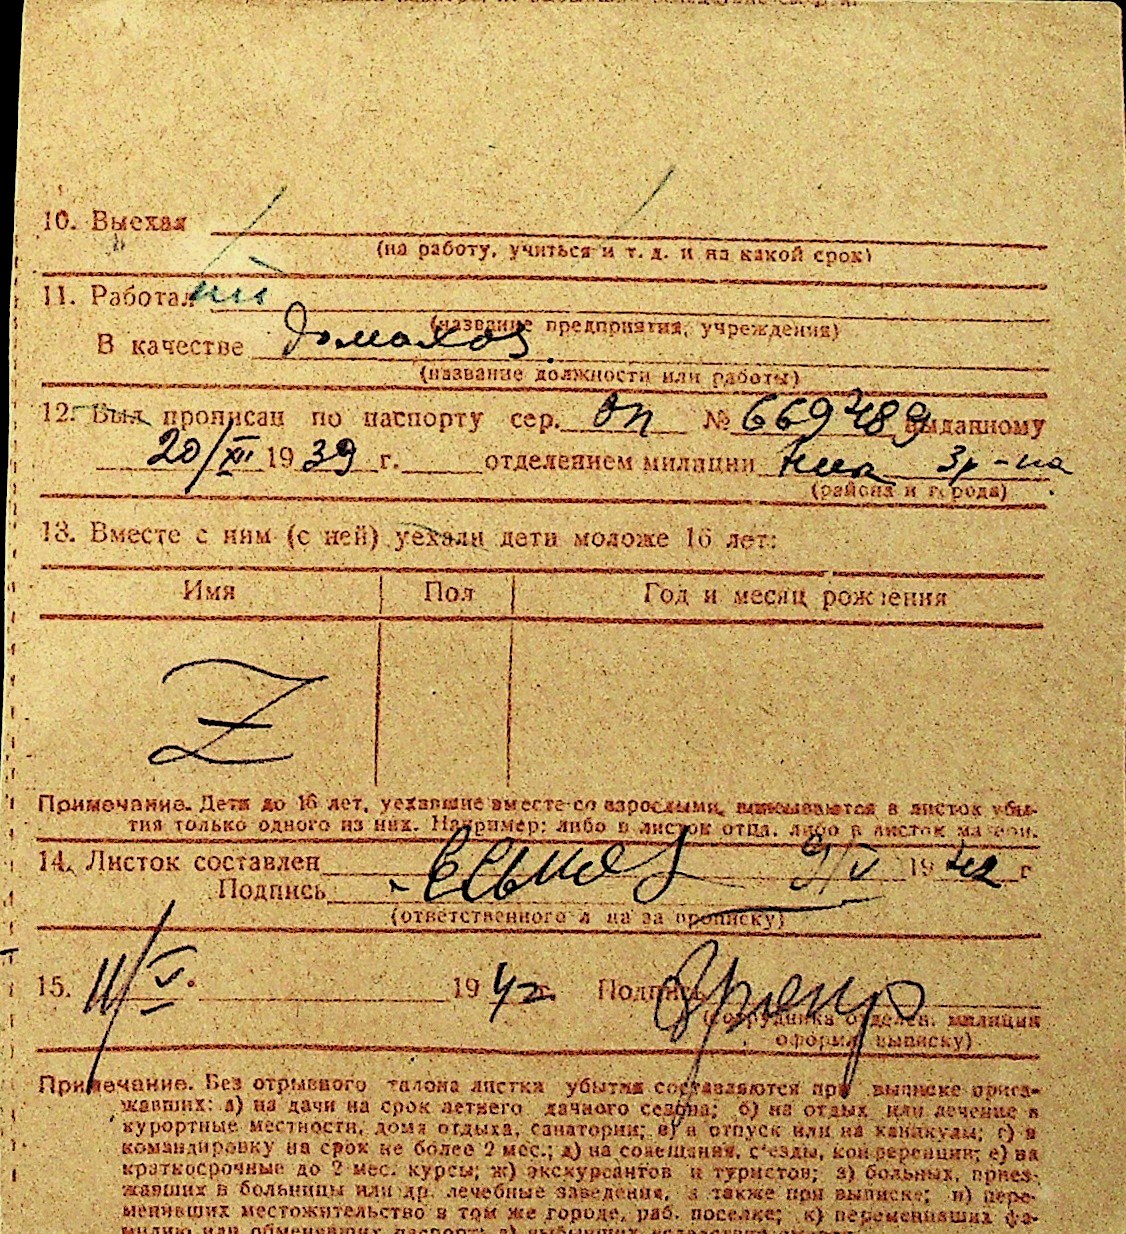 10. Выехал
(на работу, учиться и т. д. и на какой срок)
11. Работал
(название предприятия, учреждения)
В качестве домахоз.
(название должности или работы)
12. Был прописан по паспорту сер. ОП № 669489 выданному
20/XII 1939 г. отделением милиции
(района и города)
13. Вместе с ним (с ней) уехали дети моложе 16 лет:
Имя Пол Год и месяц рождения
Z
Примечание. Дети до 16 лет, уехавшие вместе со взрослыми, вписываются в листок убы-
тия только одного из них. Например: либо в листок отца, либо в листок матери.
14. Листок составлен 9/V 1942 г
Подпись
(ответственного лица за прописку)
15. 11/V. 1942 г. Подпись
(сотрудника отделен. милиции
оформ. выписку)
Примечание. Без отрывного талона листка убытия составляются при выписке приез-
жавших: а) на дачи на срок летнего дачного сезона; б) на отдых или лечение в
курортные местности, дома отдыха, санатории; в) в отпуск или на каникулы; г) в
командировку на срок не более 2 мес.; д) на совещания, съезды, конференции; е) на
краткосрочные до 2 мес. курсы; ж) экскурсантов и туристов; з) больных, приез-
жавших в больницы или др. лечебные заведения, а также при выписке; и) пере-
менивших местожительство в том же городе, раб. поселке; к) переменивших фа-
милию или обменявших паспорт; л) выбывших вследствие смерти.